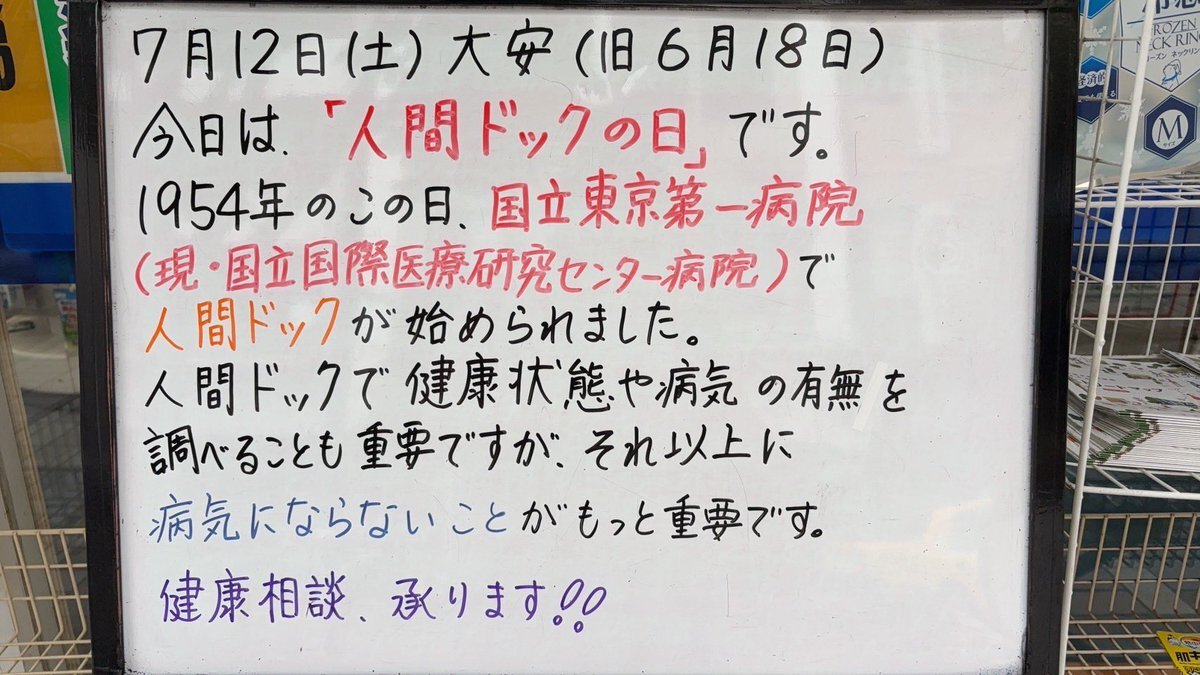 7月12日(土)大安(旧6月18日)
今日は、「人間ドックの日」です。
1954年のこの日、国立東京第一病院
(現・国立国際医療研究センター病院)で
人間ドックが始められました。
人間ドックで健康状態や病気の有無を
調べることも重要ですが、それ以上に
病気にならないことがもっと重要です。
健康相談、承ります!!
FROZEN
NECK RING
M
サイズ